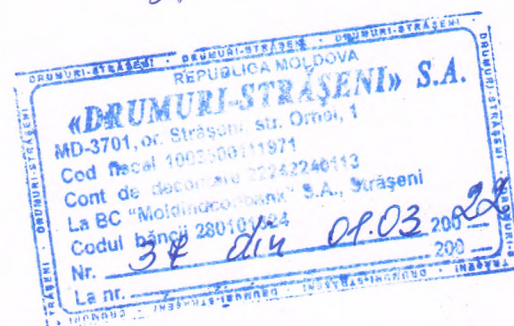 DRUMURI-STRĂŞENI · DRUMURI-STRĂŞENI · DRUMURI-STRĂŞENI
REPUBLICA MOLDOVA
«DRUMURI-STRĂŞENI» S.A.
MD-3701, or. Străşeni, str. Orhei, 1
Cod fiscal
Cont de decontare 22242240113
La BC "Moldindconbank" S.A., Străşeni
Codul băncii
Nr. din 01.03 200 22
La nr. 200